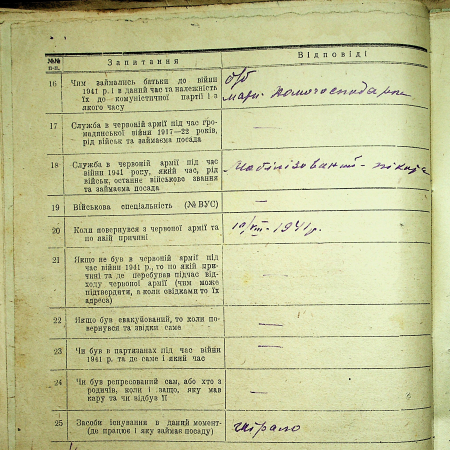 №№ п-п.
Запитання
Відповіді
16
Чим займались батьки до війни
1941 р. і в даний час та належність
їх до комуністичної партії і з
якого часу
б/п
17
Служба в червоній армії під час гро-
мадянської війни 1917—22 років,
рід військ та займаєма посада
—
18
Служба в червоній армії під час
війни 1941 року, який час, рід
військ, останнє військове звання
та займаєма посада
Мобілізований -
19
Військова спеціальність (№ ВУС)
—
20
Коли повернувся з червоної армії та
по якій причині
10/VIII - 1941 р.
21
Якщо не був в червоній армії під
час війни 1941 р., то по якій при-
чині та де перебував підчас від-
ходу червоної армії (чим може
підтвердити, а коли свідками то їх
адреса)
—
22
Якщо був евакуйований, то коли по-
вернувся та звідки саме
—
23
Чи був в партизанах під час війни
1941 р. та де саме і який час
—
24
Чи був репресований сам, або хто з
родичів, коли і защо, яку мав
кару та чи відбув її
—
25
Засоби існування в даний момент
(де працює і яку займає посаду)